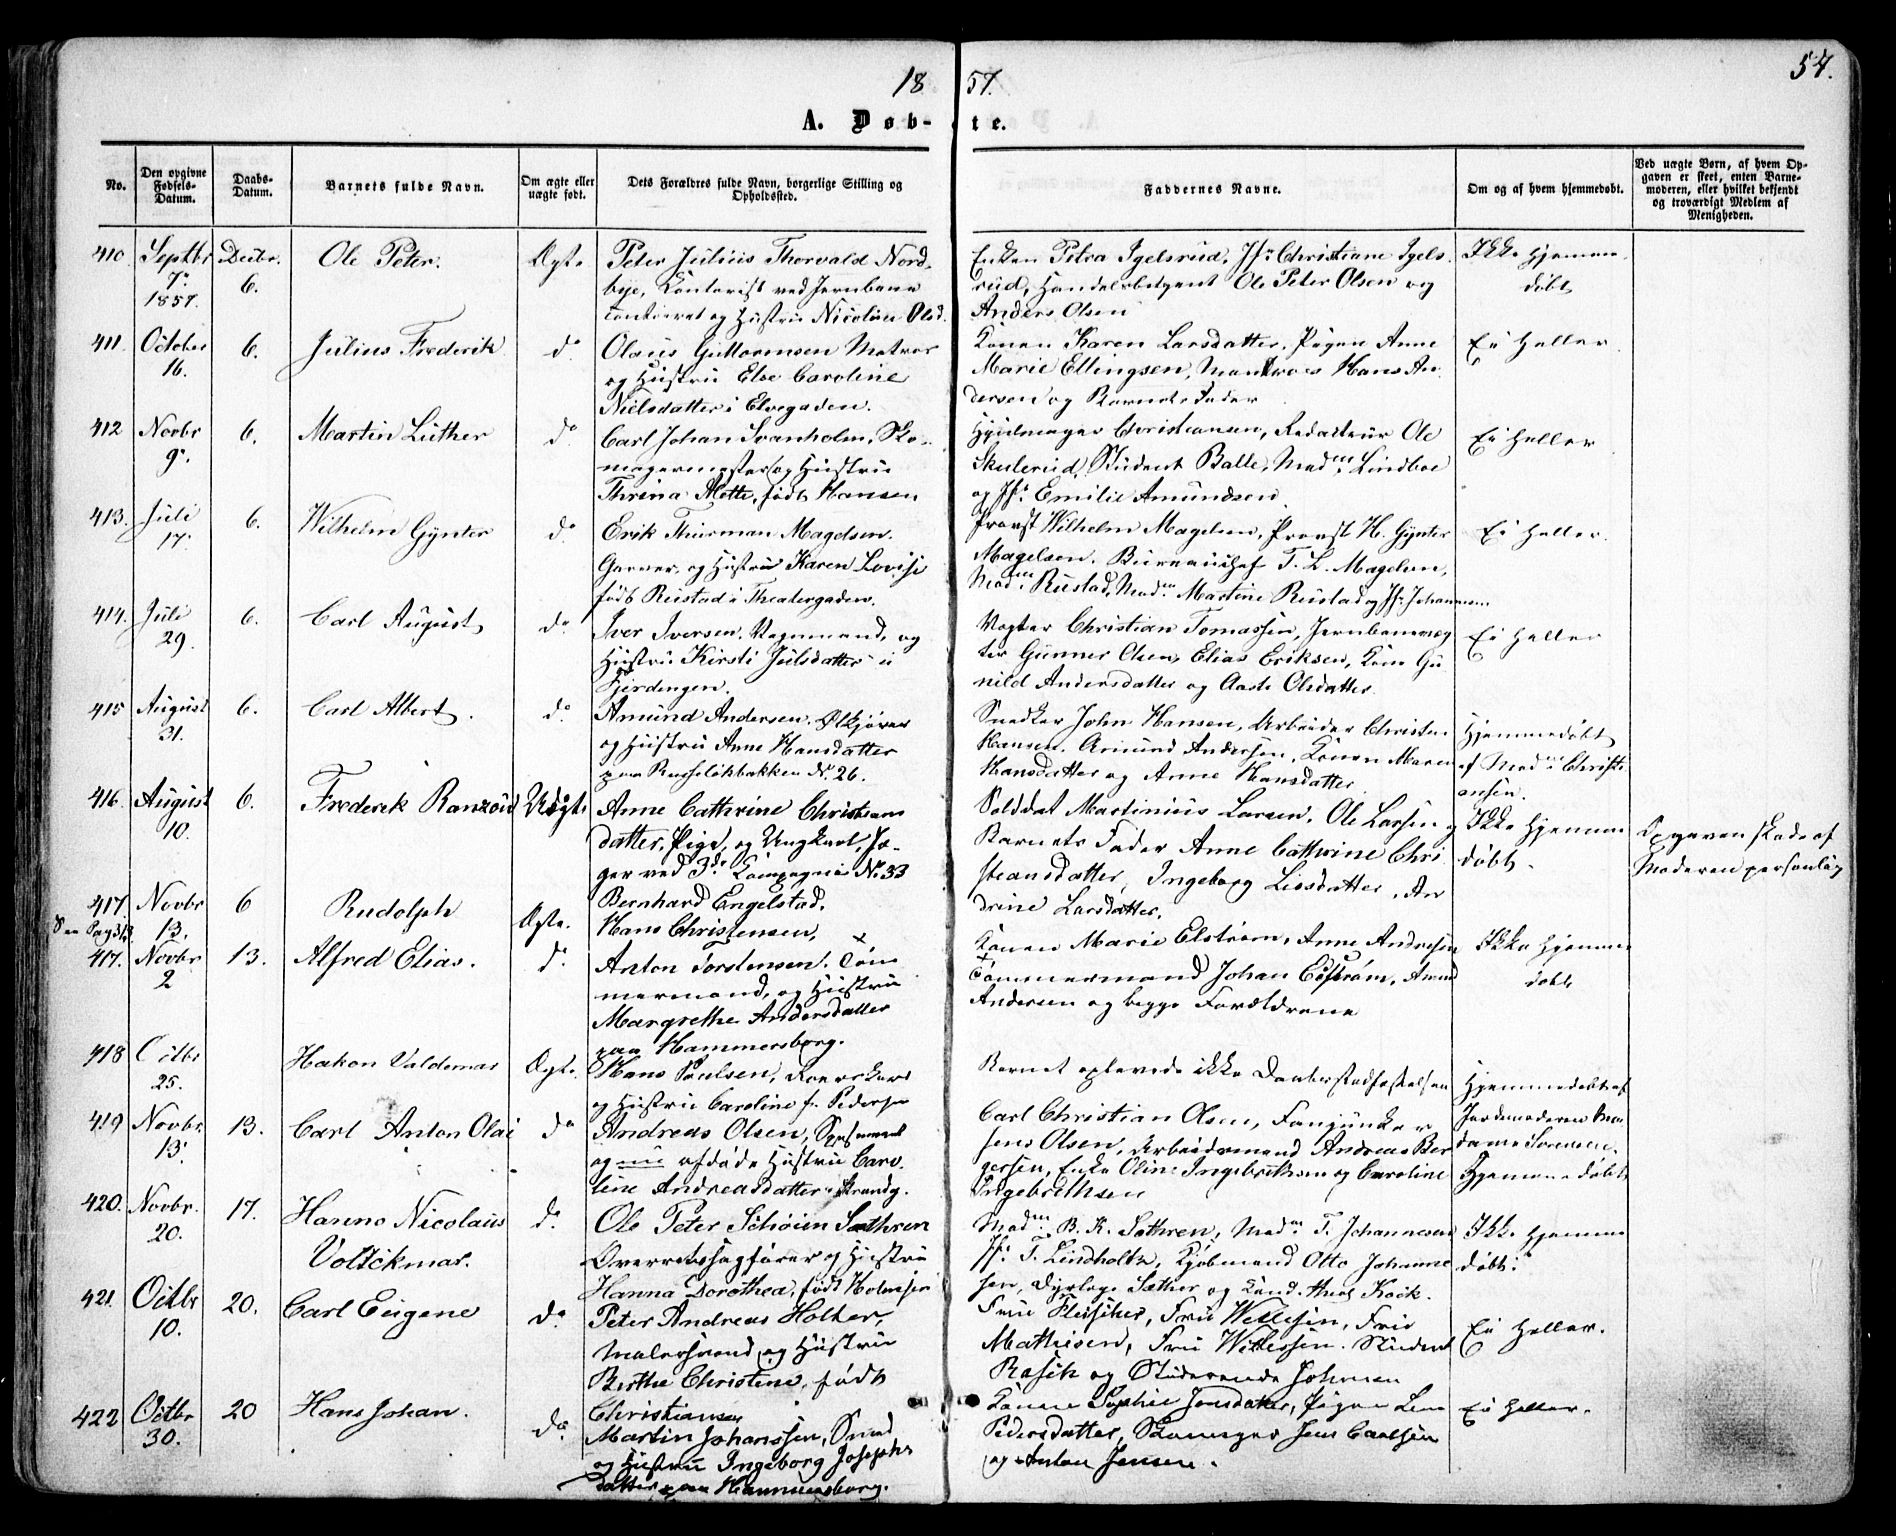 1857.
57.
A. Døbte.
No.
Den opgivne Fødsels-Datum.
Daabs-Datum.
Barnets fulde Navn.
Om ægte eller uægte født.
Dets Forældres fulde Navn, borgerlige Stilling og Opholdssted.
Faddernes Navne.
Om og af hvem hjemmedøbt.
Ved uægte Børn, af hvem Opgaven er skeet, enten Barnemoderen, eller hvilket bekjendt og troværdigt Medlem af Menigheden.
410 Septbr 7. 1857. Decbr. 6. Ole Peter. Ægte
Peter Julius Thorvald Nord-
bye, Contorist ved Jernbane
contoret og Hustru Nicoline Olsd.
Enken Petra Igelsrud, Jfr Christiane Igels-
rud, Handelsbetjent Ole Peter Olsen og
Anders Olsen
Ikke hjemme
døbt
411. October 16. 6. Julius Frederik do
Olaus Guttormsen Matros
og Hustru Else Caroline
Nielsdatter i Elvegaden.
Konen Karen Larsdatter, Pigen Anne
Marie Ellingsen, Matros Hans An-
dersen og Barnets Fader
Ei heller.
412 Novbr 9. 6. Martin Luther do
Carl Johan Svanholm, Sko-
magermester og Hustru
Thrina Mette, født Hansen
Hjulmager Christiansen, Redacteur Ole
Skulerud, Student Balle, Madm. Lindboe
og Jfr Emilie Amundsen
Ei heller
413. Juli 17. 6. Wilhelm Gynter do
Erik Thurman Magelsen.
Garver, og Hustru Karen Lovise
født Rustad i Theatergaden.
Provst Wilhelm Magelsen, Provst H. Gynter
Magelsen, Bureauchef T. L. Magelsen,
Madm. Rustad, Madm. Martine Rustad og Jfr Johannesen
Ei heller.
414. Juli 29. 6. Carl August do
Iver Iversen, Vognmand, og
Hustru Kirsti Julsdatter i
Fjerdingen.
Vogter Christian Tomassen, Jernbanevog-
ter Gunner Olsen, Elias Eriksen, Kone Gu-
nild Andersdatter og Aaste Olsdatter.
Ei heller
415 August 31. 6. Carl Albert. do
Amund Andersen. Ølkjører
og Hustru Anne Hansdatter
paa Russeløkbakken No 26.
Snedker John Hansen, Arbeider Christen
Hansen. Amund Andersen, Konen Maren
Hansdatter og Anne Hansdatter
Hjemmedøbt
af Madm. Christi-
ansen.
416. August 10. 6. Frederik Ranzau Uægte
Anne Cathrine Christians
datter, Pige, og Ungkarl, Jæ-
ger ved 3die Compagnie No 33
Bernhard Engelstad.
Soldat Martinius Larsen, Ole Larsen og
Barnets Fader Anne Cathrine Chri
stiansdatter, Ingeborg Larsdatter, An
drine Larsdatter.
Ikke hjemme
døbt.
Opgaven skede af
Moderen personlig
417. Novbr 13. 6 Rudolph Ægte.
See Pag 313.
Hans Christensen,
417. Novbr 2 13. Alfred Elias. do
Anton Torstensen. Tøm
mermand, og Hustru
Margrethe Andersdatter
paa Hammersborg.
Konen Marie Elstrøm, Anne Andresen
Tømmermand Johan Elstrøm, Amund
Andersen og begge Forældrene
Ikke hjemme
døbt
418 Octbr 25. Hakon Valdemar Ægte.
Hans Paulsen, Roerskarl
og Hustru Caroline f. Pedersen
Barnet oplevede ikke Daabsstadfæstelsen
Hjemmedøbt af
Jordemoderen Ma-
dame Sørensen.
419 Novbr. 13. 13. Carl Anton Olai do
Andreas Olsen, Spasmand
og nu afdøde Hustru Caro-
line Andreasdatter i Strandg.
Carl Christian Olsen, Fanjunker
Jens Olsen, Arbeidsmand Andreas Ber
gersen, Enke Oline Ingebrithsen og Caroline
Ingebrethsen
Hjemmedøbt
420. Novbr. 20. 17. Hanno Nicolaus do
Voltckmar.
Ole Peter Schøien Sathren
Overretssagfører og Hustru
Hanna Dorothea, født Holmsen
Madm. B. K. Sathren, Madm. T. Johannesen
Jfr. T. Lindholtz, Kjøbmand Otto Johanne
sen, Dyrlæge Sather og Cand. theol Koik.
Ikke hjemme
døbt.
421. Octbr 10. 20. Carl Eugene do
Peter Andreas Holter,
Malersvend og Hustru
Berthe Christine, født
Christiansen
Fru Fleischer, Fru Wettesen, Fru
Mathisen, Fru Wettesen. Student
Rasch og Studerende Johnsen
Ei heller.
422 Octbr 30. 20 Hans Johan. do
Martin Johanssen, Smed
og Hustru Ingeborg Josephs
datter paa Hammersborg.
Konen Sophie Jonsdatter, Pigen Lene
Pedersdatter, Skomager Jens Carlsen
og Anton Jensen.
Ei heller.